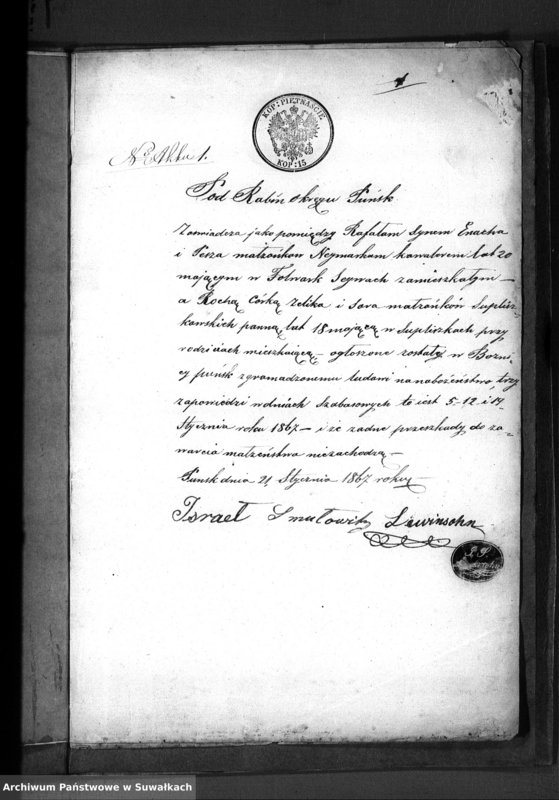 1
KOP: PIĘTNAŚCIE
KOP: 15
No Aktu 1.
Pod Rabin okręgu Puńsk
Zaswiadcza jako pomiędzy Rafałam synem Enacha
i Pesza małżonkow Neymarkam kawalerem lat 20
mającym w Folwark Seywach zamieszkałym —
a Rochą Córką Zelika i Sora małżonków Suplisz-
kowskich panną lat 18 mającą w Supliszkach przy
rodzicach mieszkaiącą — ogłoszone zostały w Bożni-
cy puńsk zgromadzonemu ludowi na nabożeństwo trzy
zapowiedzi w dniach Szabasowych to iest 5 - 12 i 19
Stycznia roku 1867 — i że żadne przeszkody do za-
warcia małżeństwa niezachodzą —
Puńsk dnia 21 Stycznia 1867 roku
Israel Smułowitz Lewinsohn
Archiwum Państwowe w Suwałkach